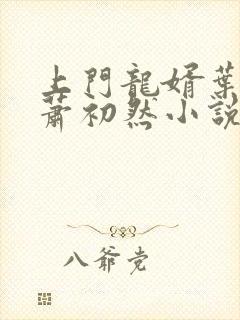 上門龍婿葉
蕭初然小說
八爺党